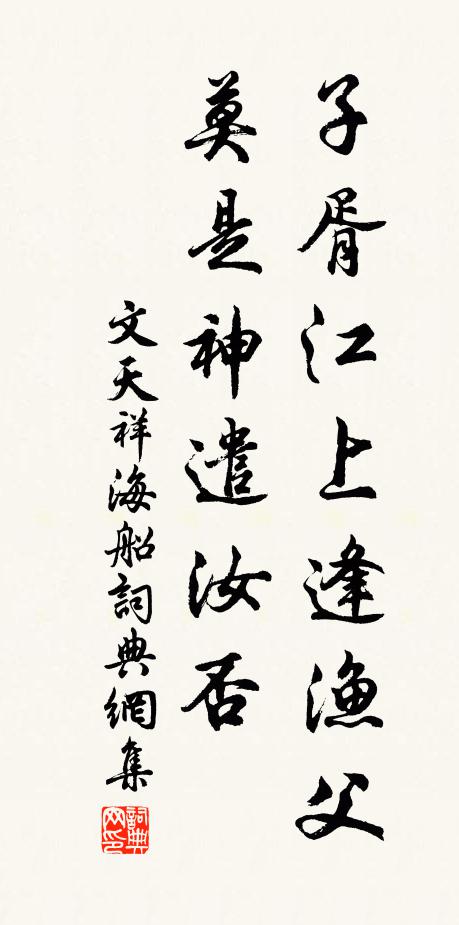 子胥江上逢漁父
莫是神遣汝否
文天祥海船詞典網集
詞典网印